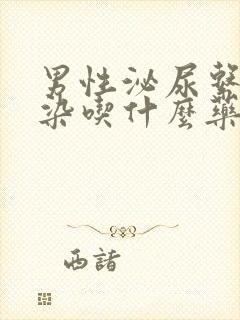 男性泌尿
染喫什麼藥
西諸